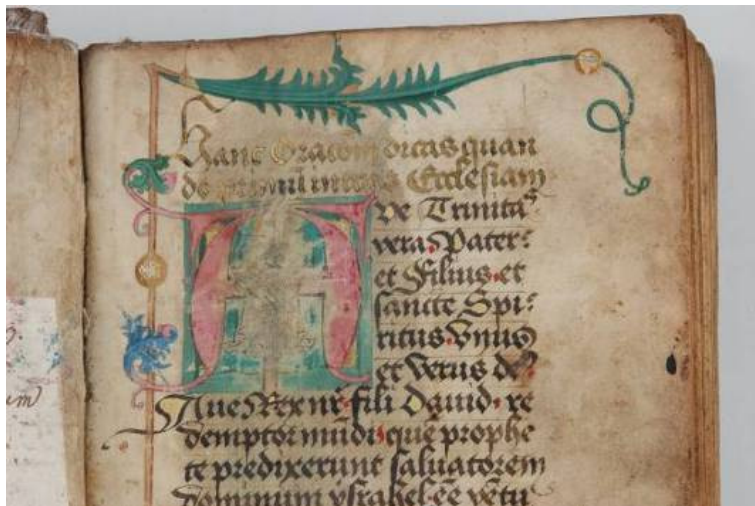 Hanc Oracōm dicas quan
do primū intras Ecclesiam
Ave Trinitas
vera. Pater
et Filius. et
sancte Spi-
ritus. Vnus
et verus de9
Aue Rex nr̄ fili dauid. re
demptor mūdi. que prophe
te predixerunt saluatorem
dominum ysrahel. eē vētu